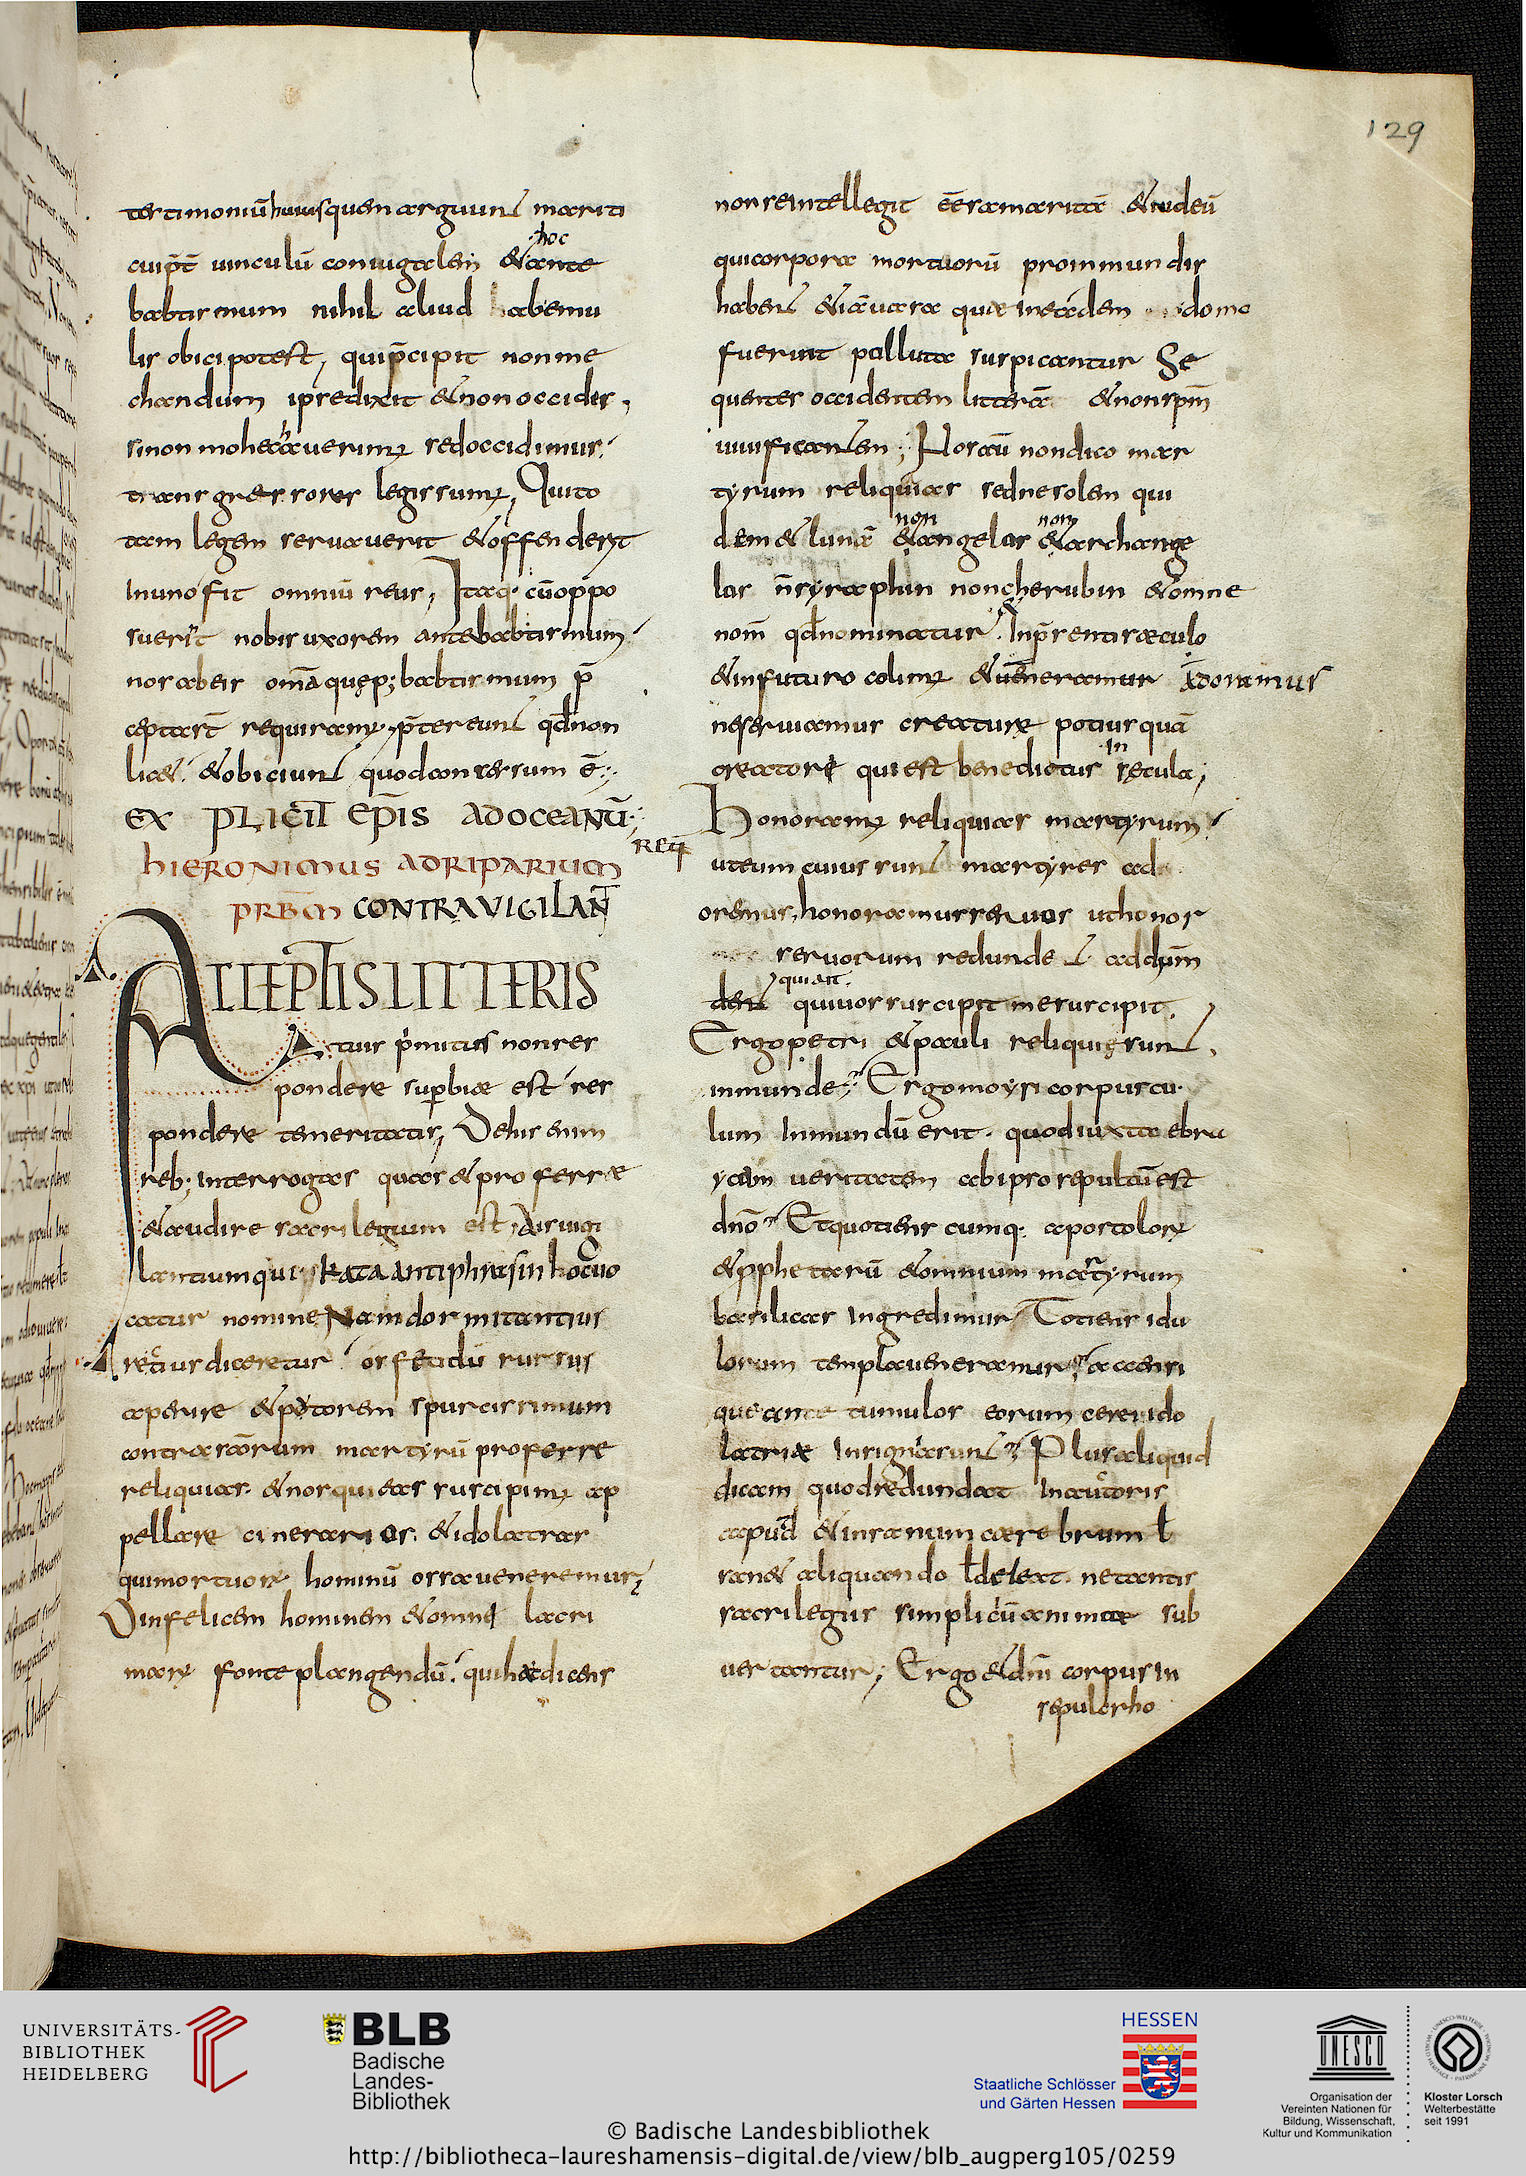 129
testimoniū huius quem arguunt mariti
cuiptē uinculū coniugalem &ante
hoc
babtismum nihil aliud habemu
lis obici potest, qui p̄cipit non me
chandum ipse dixit & non occidis,
si non mohecauerimus sed occidimus,
h
transgressores legis sumus, Qui to
tam legem seruauerit & offenderit
in uno fit omniū reus, Itaq; cū oppo
suerit nobis uxorem ante babtismum
nos ab eis omīa que p; babtismum p̄
cepta st̄ requiramus, p̄tereunt qđ non
lic&. & obiciunt quod concessum ē;
EX PLICIT EPĪS AD OCEANŪ;
HIERONIMUS AD RIPARIUM
PRBM CONTRA VIGILANT
ACCEPTIS LITTERIS
tuis p̄mitus non res
pondere superbiae est res
pondere temeritatis, De his enim
reb; interrogas quas & proferre
& audire sacrilegium est; Ais uigi
lantium qui kata antiphrasin hoc uo
catur nomine Nam dormitantius
rectius diceretur os fetidū rursus
aperire & putorem spurcissimum
contra sc̄orum martyrū proferre
reliquias. & nos qui eas suscipimus ap
pellare cinerarios. & idolatras
qui mortuorum hominū ossa ueneremur;
O infelicem hominem & omni lacri
marum fonte plangendū. qui haec dicens
non se intellegit eē samaritā & iudeū
qui corpora mortuorū pro inmundis
habent & iā uasa quae in eadem domo
fuerint polluta suspicantur Se
quentes occidentem litterā & non spm̄
uiuificantem; Nos aū non dico mar
tyrum reliquias sed ne solem qui
dem & lunā & angelos & archange
non non
los n̄ syraphin non cherubin & omne
nom̄ qđ nominatur. In p̄senti saeculo
& in futuro colimus & ueneramur adoramus
ne seruiamus creaturae potius quā
creatore qui est benedictus secula;
in
Honoramus reliquias martyrum
ut eum cuius sunt martyres ad
oremus, honoramus seruos ut honor
seruorum redundet ad dn̄m
qui ait.
qui uos suscipit me suscipit.
Ergo petri & pauli reliquie sunt
inmunde; Ergo moysi corpuscu
lum inmundū erit. quod iuxta ebra
ycam ueritatem ab ipso sepultū est
dn̄o Et quotiens cumq; apostolorum
& pphetarū & omnium martyrum
basilicas ingredimur Totiens idu
lorum templa ueneramur accensi
que ante tumulos eorum cerei ido
latriae insignia sunt Plus aliquid
dicam quod redundat in auctoris
capud & insanum caerebrum ł
san& aliquando ł deleat. ne tantis
sacrilegiis simplicū animae sub
uertantur, Ergo & dn̄i corpus in
sepulcrho
UNIVERSITÄTS-
BIBLIOTHEK
HEIDELBERG
BLB
Badische
Landes-
Bibliothek
HESSEN
Staatliche Schlösser
und Gärten Hessen
UNESCO
Organisation der
Vereinten Nationen für
Bildung, Wissenschaft,
Kultur und Kommunikation
Kloster Lorsch
Welterbestätte
seit 1991
© Badische Landesbibliothek
http://bibliotheca-laureshamensis-digital.de/view/blb_augperg105/0259